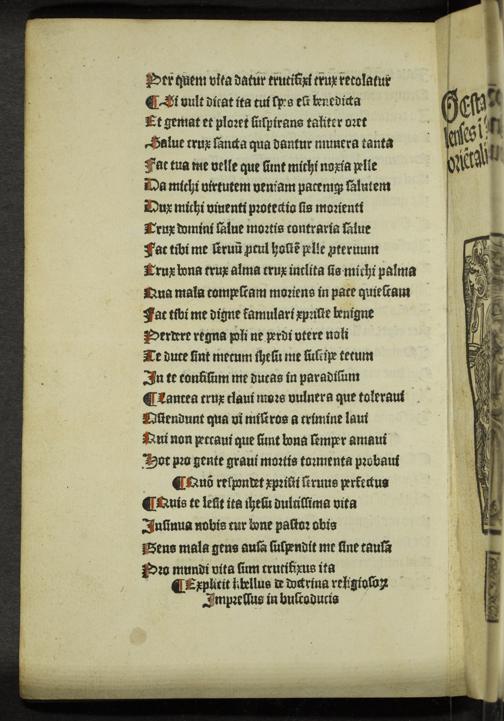 Per quem vita datur crucifixi crux recolatur
¶ Si vult dicat ita cui spes est benedicta
Et gemat et ploret suspirans taliter oret
Salue crux sancta qua dantur munera tanta
Fac tua me velle que sunt michi noxia pelle
Da michi virtutem veniam pacemqꝫ salutem
Dux michi viuenti protectio sis morienti
Crux domini salue mortis contraria salue
Fac tibi me seruū ꝓcul hostē pelle ꝓteruum
Crux bona crux alma crux inclita sis michi palma
Qua mala compescam moriens in pace quiescam
Fac tibi me digne famulari xpriste benigne
Perdere regna poli ne perdi vtere noli
Te duce sint mecum ihesu me suscipe tecum
In te confisum me ducas in paradisum
¶ Lancea crux claui mors vulnera que toleraui
Ostendunt qua vi miseros a crimine laui
Qui non peccaui que sunt bona semper amaui
Hoc pro gente graui mortis tormenta probaui
¶ Quō respondet xpristi seruus perfectus
¶ Quis te lesit ita ihesu dulcissima vita
Insinua nobis cur bone pastor obis
Gens mala gens ausa suspendit me sine causa
Pro mundi vita sum crucifixus ita
¶ Explicit libellus de doctrina religiosoꝝ
Impressus in buscoducis
Gesta
lenses i
oriētali